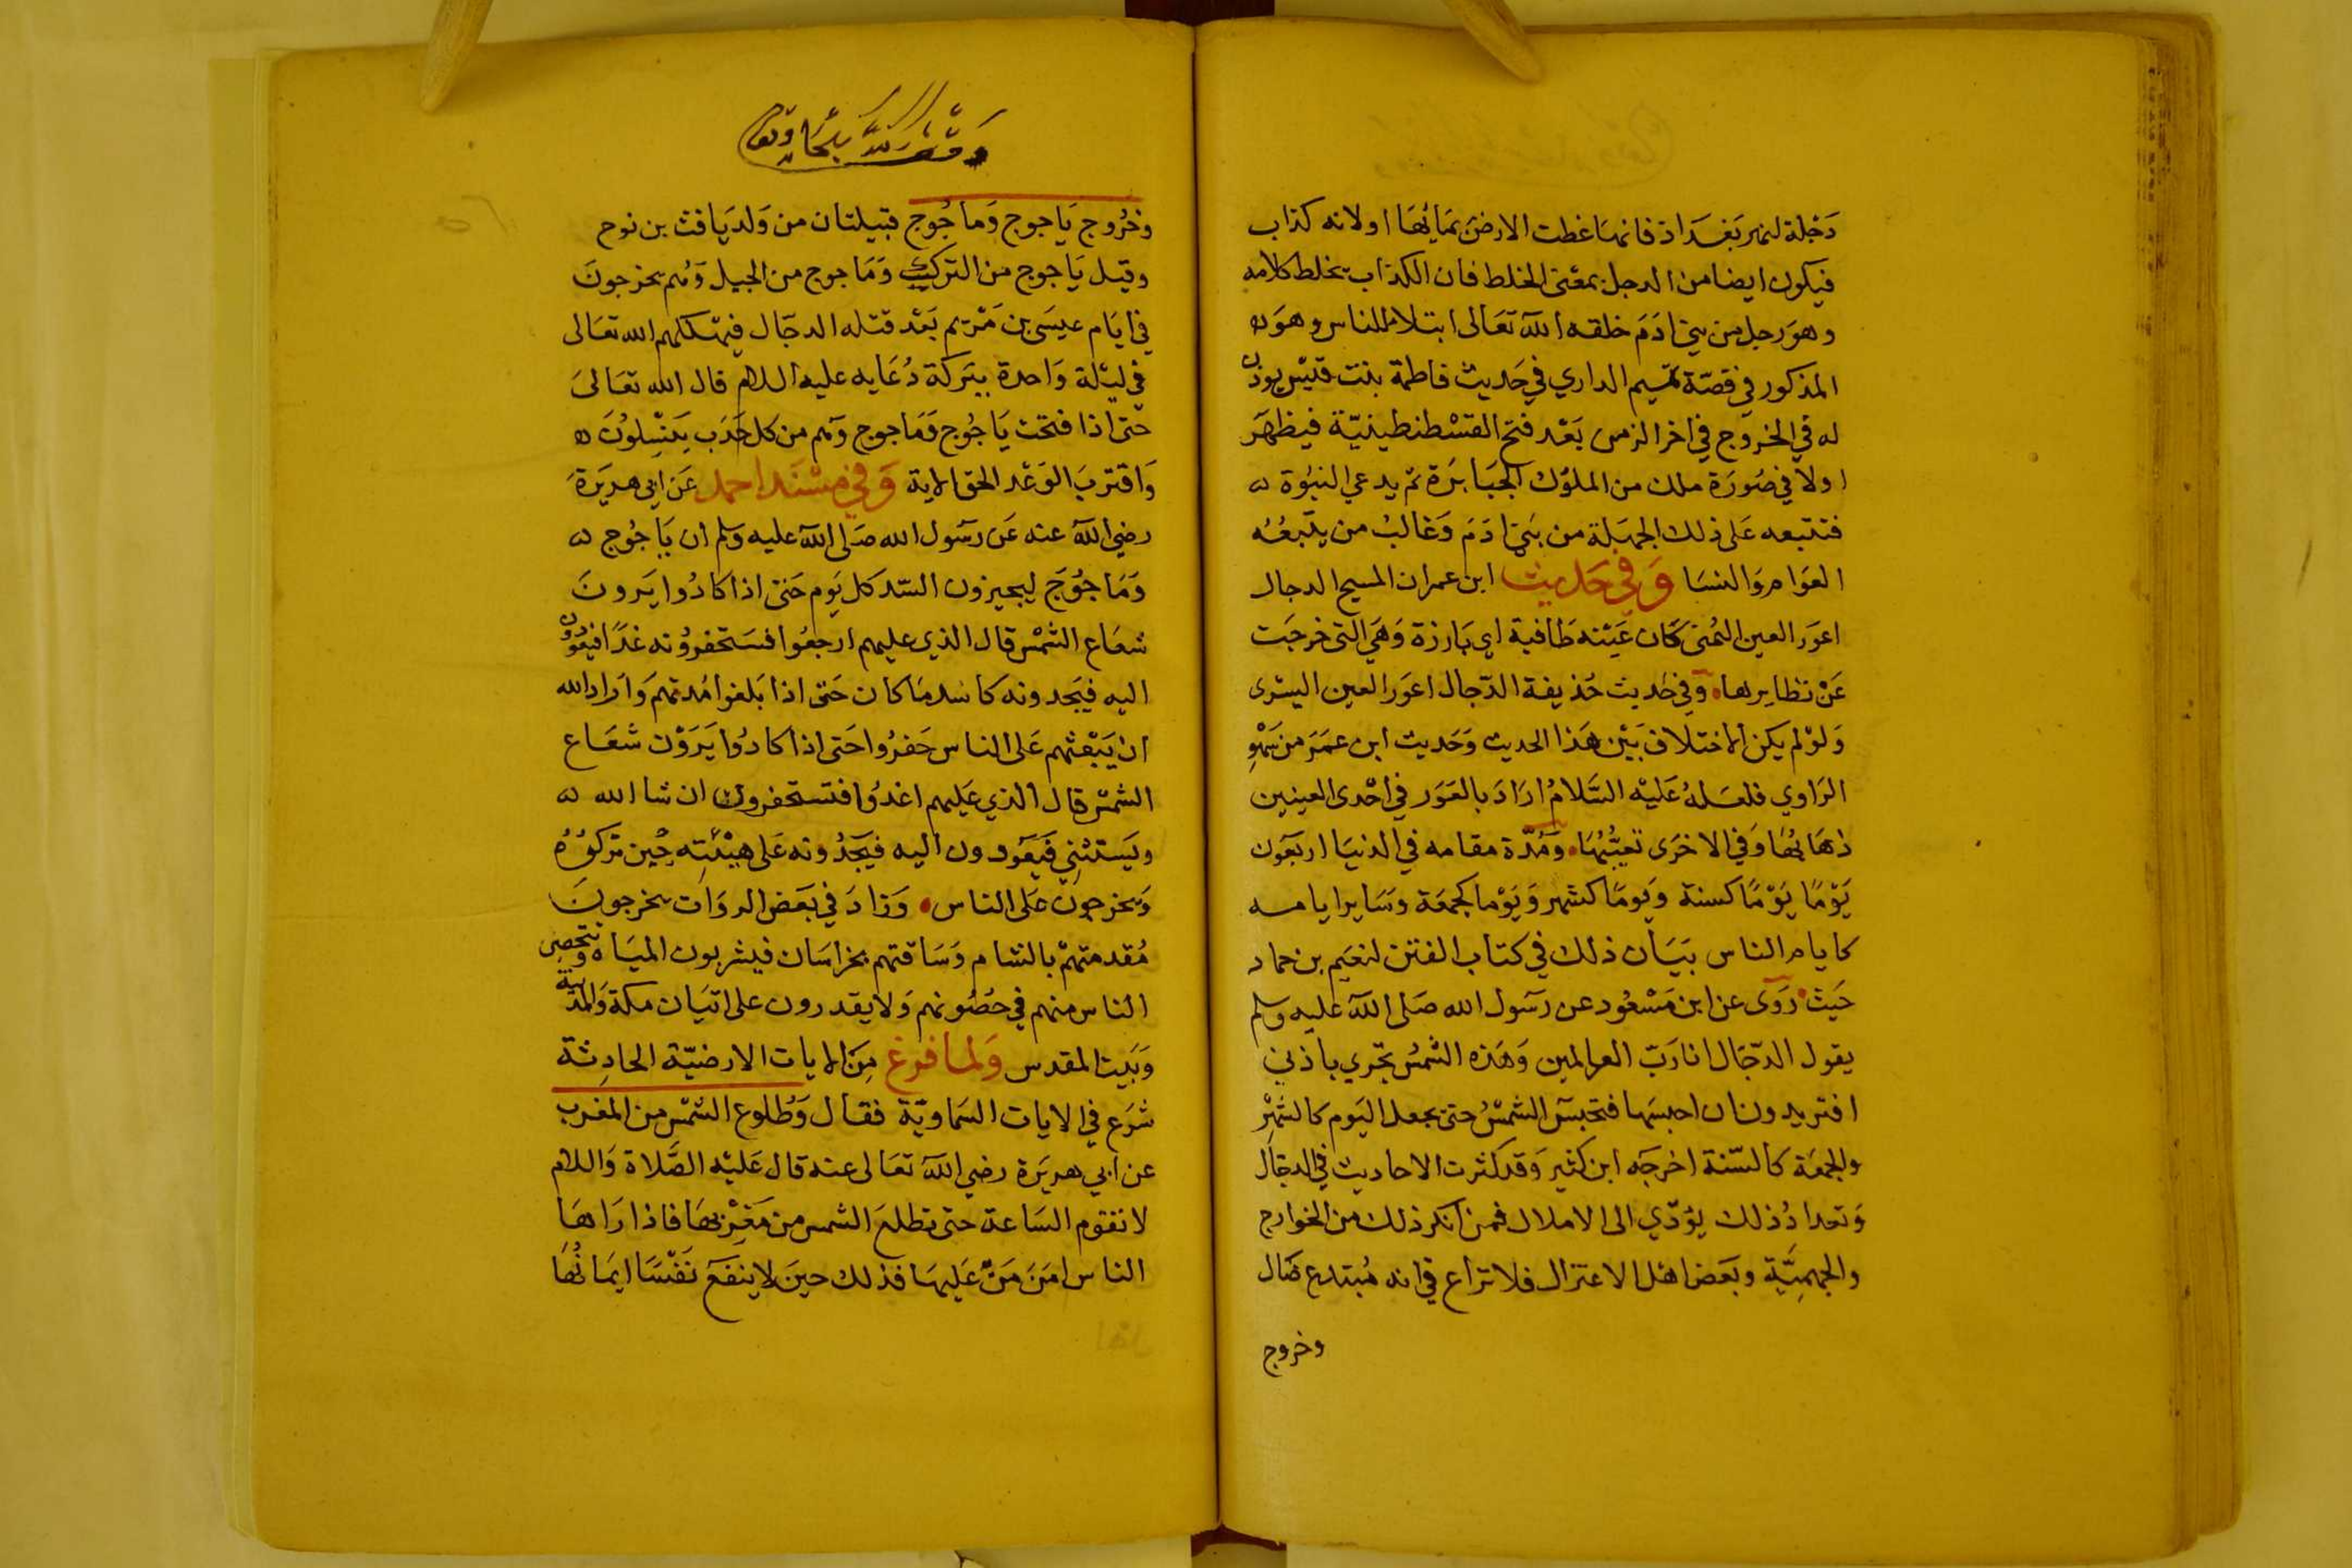 دَجْلة لنهر بَغدَاذ فانهَا غطت الارضَ بمَائهَا اولانه كذاب
فيكون ايضا من الدجل بمعْنى الخلط فان الكذاب يخلط كلامه
وهوَ رجل من بني ادَمَ خلقه اللّه تعَالى ابتلاء للناس وهوَ
المذكور في قصّة تميم الداري في حَديث فاطمة بنت قَيْس يوذن
له في الخروج في اخر الزمن بَعْد فتح القسْطنطينيّة فيظهَر
اولا في صُورَة ملك من الملوُك الجبَابرَة ثم يدعي النبوُة
فتتبعه عَلى ذلك الجهَلة من بَني ادَمَ وَغالبُ من يتّبعُه
العوَام وَالنسَا وَفي حَديث ابن عمر ان المسيح الدجال
اعوَر العين اليُمنى كَان عَيْنه طَافية اي بَارزة وَهيَ التى خرجَت
عَنْ نظايرها وَفي حَديث حُذيفة الدّجال اعوَر العين اليسْرى
وَلوْ لم يكن الاختلاف بَيْن هَذا الحديث وَحَديث ابن عمَرَ من سَهْوِ
الرَاوي فلعَلهُ عَليْه السَّلامُ ارَادَ بالعَوَر في احْدى العينين
ذهَابهَا وَفي الاخرَى تعيّبُهَا وَمُدّة مقامه في الدنيَا اربَعوُن
يَوْمًا يَوْمًا كسنة وَيومًا كشهر وَيَوْما كجمعَة وسَاير ايامه
كايام الناس بَيَان ذلك في كتاب الفتن لنعَيم بن حماد
حَيث رَوَى عن ابن مَسْعُود عن رَسَول الله صَلى اللّه عليه وسلم
يقول الدّجَال انا رَبّ العالمين وَهَذه الشمسُ تجْري باذني
افتريدون ان احبسَها فتحبسَ الشمسُ حتى يجعل اليَوم كالشهْر
والجمعَة كالسّنة اخرجَه ابن كثير وَقد كثرت الاحاديث في الدجّال
وَتعدادُ ذلك يؤدّي الى الاملال فمن انكر ذلك من الخوارج
والجهميَّة وبَعَض اهْل الاعتزال فلا نزاع في انه مُبتدع ضَال
وخروج
وخرُوج يَاجوج وَماجُوج قبيلتان من وَلد يَافث بن نوح
وقيل يَاجوج من الترك وَمَاجوج من الجيل وَهُم يخرجونَ
في ايَام عيسَى بن مَرْيم بَعْد قتله الدجّال فيهْلكهم الله تعَالى
في ليْلة وَاحدة ببَركة دُعَايه عليه السلام قال الله تعَالىَ
حَتى اذا فتحت يَاجُوج وَمَاجوج وَهم من كل حَدَب يَنْسِلوُن
وَاقتربَ الوَعْد الحق الاية وَفي مسْنَد احمد عَن ابي هريَرَة
رضي اللّه عنه عَن رسَول الله صَلى اللّه عليه وسلم ان يَاجُوج
وَمَاجُوجَ ليحفرون السّد كل يَوم حَتى اذا كادُوا يَرونَ
شعَاع الشمْس قال الذي عليهم ارجعُوا فسَتحفروُنه غدًا فيعُودُون
اليه فيَجدونه كاشد مَا كان حَتى اذا بَلغوا مُدتهمَ وَارَاد الله
ان يَبْعثهم عَلى الناس حَفرُوا حَتى اذا كادُوا يَرَوْن شعَاع
الشمْس قال الذي عَليهم اغدُوا فتستحفرونه ان شا الله
ويَستثني فيَعَودون اليه فيَجدُونه عَلى هيْئتِه حِين تركوُهُ
وَيخرجون عَلى الناس وَزادَ في بَعَض الروَات يخرجونَ
مُقدمتهمْ بالشام وَسَاقتهم بخراسَان فيشربون الميَاه وَيتحصن
الناس منهم في حُصُونهم وَلا يقدرون على اتيَان مكة وَالمدينة
وَبَيت المقدس وَلما فرغ مِنَ الايات الارضيّة الحادِثة
شرَع في الايات السَماويّة فقال وَطُلوع الشمْس من المغرب
عن ابي هريرَة رضي اللّه تعَالى عنه قال عَليْه الصَّلاة وَالسلام
لا تقوم السَاعة حتى تطلعَ الشمس من مَغرْبهَا فاذا رَاهَا
الناس امَنَ مَنْ عَليهَا فذلك حينَ لا ينفَعَ نَفْسَا ايمَانُهَا